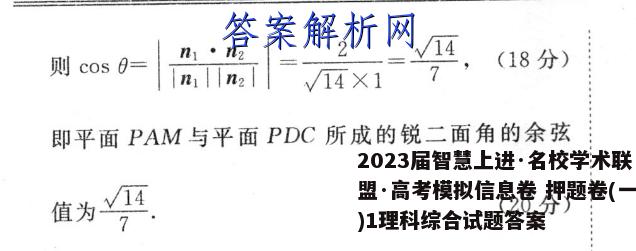 答案解析网
则 cos θ=|n₁·n₂ / |n₁||n₂||=2/(√14×1)=√14/7，（18 分）
即平面 PAM 与平面 PDC 所成的锐二面角的余弦
值为 √14/7.（20 分）
2023届智慧上进·名校学术联
盟·高考模拟信息卷 押题卷(一
)1理科综合试题答案